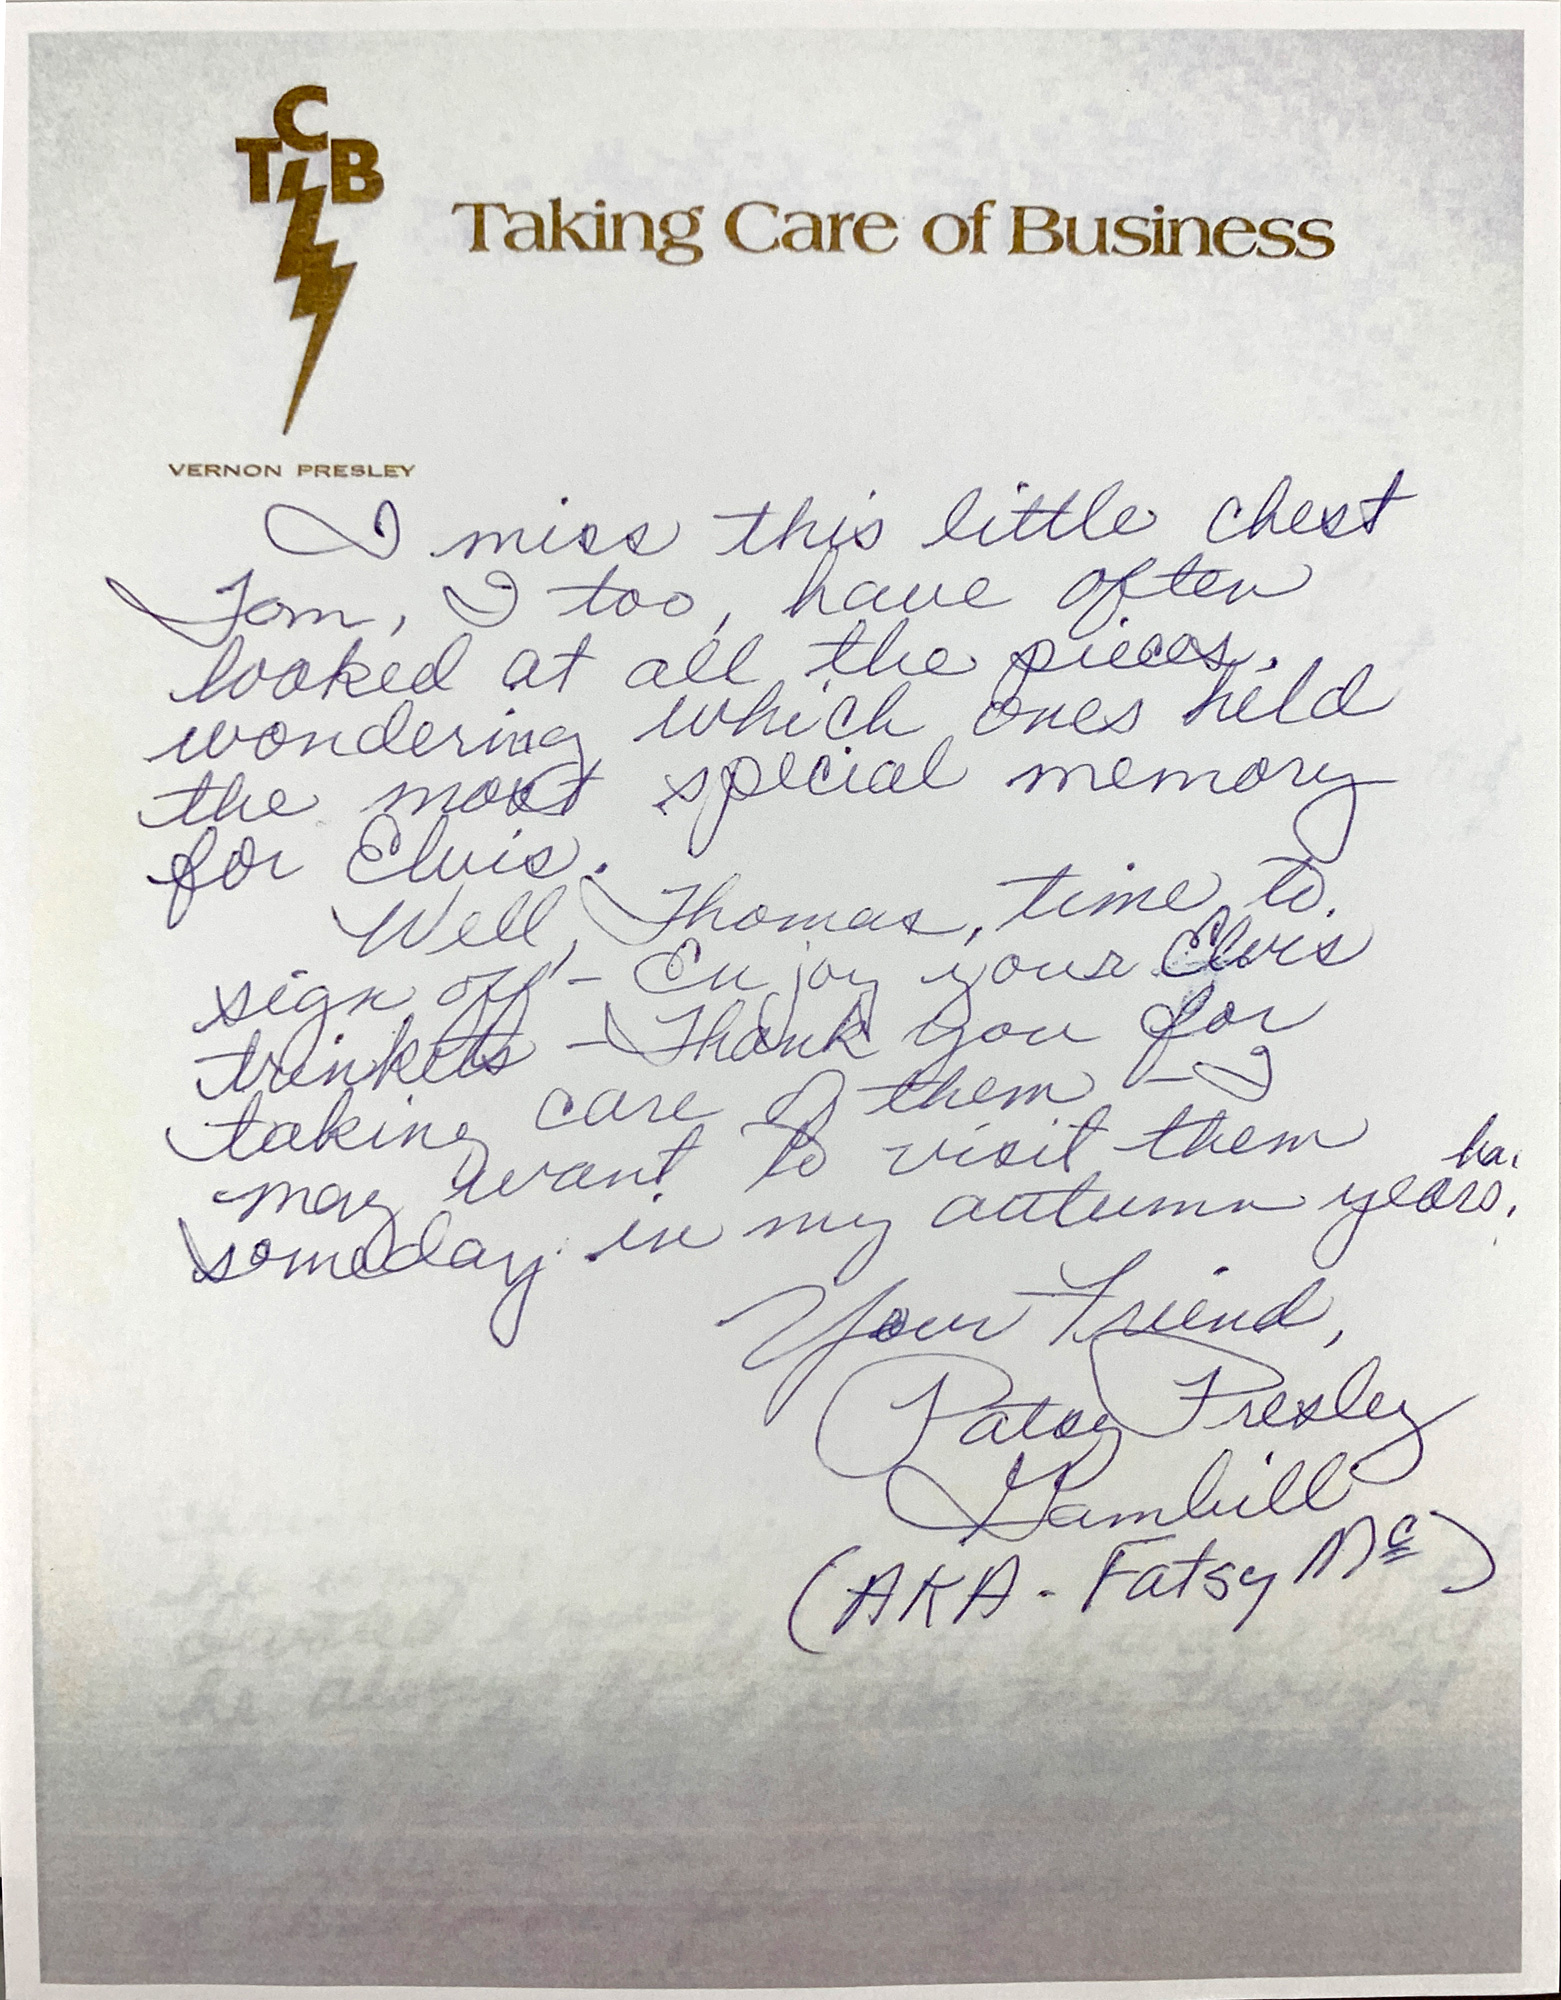 TCB
Taking Care of Business
VERNON PRESLEY
I miss this little chest
Tom, I too, have often
looked at all the pieces.
wondering which ones held
the most special memory
for Elvis.
Well, Thomas, time to
sign off - Enjoy your Elvis
trinkets - Thank you for
taking care of them - I
may want to visit them
someday in my autumn years, ha.
Your Friend,
Patsy Presley
Gambill
(AKA - Fatsy Mc)